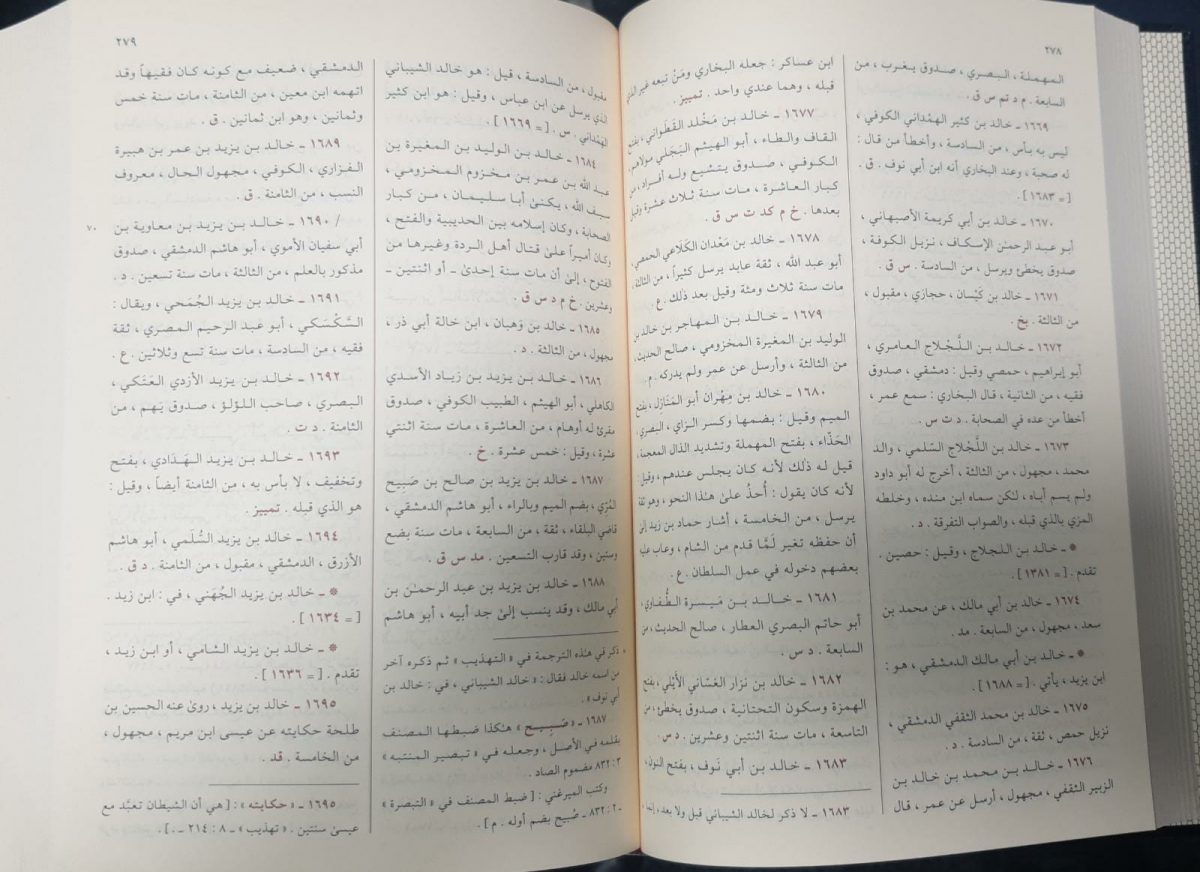 ٢٧٨
المهملة ، البصري ، صدوق يغرب ، من
السابعة . م د تم س ق .
١٦٦٩ ـ خالد بن كثير الهمْداني الكوفي ،
ليس به بأس ، من السادسة ، وأخطأ من قال :
له صحبة ، وعند البخاري أنه ابن أبي نوف . ق .
[ = ١٦٨٣ ] .
١٦٧٠ ـ خالد بن أبي كريمة الأصبهاني ،
أبو عبد الرحمٰن الإسكاف ، نزيل الكوفة ،
صدوق يخطئ ويرسل ، من السادسة . س ق .
١٦٧١ ـ خالد بن كَيْسان ، حجازي ، مقبول ،
من الثالثة . بخ .
١٦٧٢ ـ خالد بن اللَّجْلاج العامري ،
أبو إبراهيم ، حمصي وقيل : دمشقي ، صدوق
فقيه ، من الثانية ، قال البخاري : سمع عمر ،
أخطأ من عده في الصحابة . د ت س .
١٦٧٣ ـ خالد بن اللَّجْلاج السّلمي ، والد
محمد ، مجهول ، من الثالثة ، أخرج له أبو داود
ولم يسم أباه ، لٰكن سماه ابن منده ، وخلطه
المزي بالذي قبله ، والصواب التفرقة . د .
* ـ خالد بن اللجلاج ، وقيل : حصين .
تقدم . [ = ١٣٨١ ] .
١٦٧٤ ـ خالد بن أبي مالك ، عن محمد بن
سعد ، مجهول ، من السابعة . مد .
* ـ خالد بن أبي مالك الدمشقي ، هو :
ابن يزيد ، يأتي . [ = ١٦٨٨ ] .
١٦٧٥ ـ خالد بن محمد الثقفي الدمشقي ،
نزيل حمص ، ثقة ، من السادسة . د .
١٦٧٦ ـ خالد بن محمد بن خالد بن
الزبير الثقفي ، مجهول ، أرسل عن عمر ، قال
ابن عساكر : جعله البخاري ومَنْ تبعه غير الذي
قبله ، وهما عندي واحد . تمييز .
١٦٧٧ ـ خالد بن مَخْلد القَطَواني ، بفتح
القاف والطاء ، أبو الهيثم البَجَلي مولاهم ،
الكوفي ، صدوق يتشيع وله أفراد ، من
كبار العاشرة ، مات سنة ثلاث عشرة وقيل
بعدها . خ م كد ت س ق .
١٦٧٨ ـ خالد بن مَعْدان الكَلَاعي الحمصي ،
أبو عبد الله ، ثقة عابد يرسل كثيراً ، من الثالثة ،
مات سنة ثلاث ومئة وقيل بعد ذلك . ع .
١٦٧٩ ـ خالد بن المهاجر بن خالد بن
الوليد بن المغيرة المخزومي ، صالح الحديث ،
من الثالثة ، وأرسل عن عمر ولم يدركه . م .
١٦٨٠ ـ خالد بن مِهْران أبو المَنَازل ، بفتح
الميم وقيل : بضمها وكسر الزاي ، البصري ،
الحَذّاء ، بفتح المهملة وتشديد الذال المعجمة ،
قيل له ذلك لأنه كان يجلس عندهم ، وقيل :
لأنه كان يقول : أُحذُ علىٰ هٰذا النحو ، وهو ثقة
يرسل ، من الخامسة ، أشار حماد بن زيد إلى
أن حفظه تغير لَمَّا قدم من الشام ، وعاب عليه
بعضهم دخوله في عمل السلطان . ع .
١٦٨١ ـ خالد بن مَيسرة الطُّفاوي ،
أبو حاتم البصري العطار ، صالح الحديث ، من
السابعة . د س .
١٦٨٢ ـ خالد بن نزار الغسّاني الأيْلي ، بفتح
الهمزة وسكون التحتانية ، صدوق يخطئ ، من
التاسعة ، مات سنة اثنتين وعشرين . د س .
١٦٨٣ ـ خالد بن أبي نَوف ، بفتح النون ،
١٦٨٣ ـ لا ذكر لخالد الشيباني قبل ولا بعد ، إنما
٢٧٩
مقبول ، من السادسة ، قيل : هو خالد الشيباني
الذي يرسل عن ابن عباس ، وقيل : هو ابن كثير
الهمْداني . س . [ = ١٦٦٩ ] .
١٦٨٤ ـ خالد بن الوليد بن المغيرة بن
عبد الله بن عمر بن مخزوم المخزومي ،
سيف الله ، يكنىٰ أبا سليمان ، من كبار
الصحابة ، وكان إسلامه بين الحديبية والفتح ،
وكان أميراً علىٰ قتال أهل الردة وغيرها من
الفتوح ، إلىٰ أن مات سنة إحدىٰ ـ أو اثنتين ـ
وعشرين . خ م د س ق .
١٦٨٥ ـ خالد بن وَهْبان ، ابن خالة أبي ذر ،
مجهول ، من الثالثة . د .
١٦٨٦ ـ خالد بن يزيد بن زياد الأسدي
الكاهلي ، أبو الهيثم ، الطبيب الكوفي ، صدوق
مقرئ له أوهام ، من العاشرة ، مات سنة اثنتي
عشرة ، وقيل : خمس عشرة . خ .
١٦٨٧ ـ خالد بن يزيد بن صالح بن صَبِيح
المُرّي ، بضم الميم وبالراء ، أبو هاشم الدمشقي ،
قاضي البلقاء ، ثقة ، من السابعة ، مات سنة بضع
وستين ، وقد قارب التسعين . مد س ق .
١٦٨٨ ـ خالد بن يزيد بن عبد الرحمٰن بن
أبي مالك ، وقد ينسب إلىٰ جد أبيه ، أبو هاشم
ذكر في هٰذه الترجمة في « التهذيب » ثم ذكره آخر
من اسمه خالد فقال : « خالد الشيباني ، في : خالد بن
أبي نوف » .
١٦٨٧ ـ « صَبِيح » هٰكذا ضبطها المصنف
بقلمه في الأصل ، وجعله في « تبصير المنتبه »
٣ : ٨٣٢ مضموم الصاد .
وكتب الميرغني : [ ضبط المصنف في « التبصرة »
ـ ٢ : ٨٣٢ ـ صُبيح بضم أوله . م ] .
الدمشقي ، ضعيف مع كونه كان فقيهاً وقد
اتهمه ابن معين ، من الثامنة ، مات سنة خمس
وثمانين ، وهو ابن ثمانين . ق .
١٦٨٩ ـ خالد بن يزيد بن عمر بن هبيرة
الفزاري ، الكوفي ، مجهول الحال ، معروف
النسب ، من الثامنة . ق .
٧٠ / ١٦٩٠ ـ خالد بن يزيد بن معاوية بن
أبي سفيان الأموي ، أبو هاشم الدمشقي ، صدوق
مذكور بالعلم ، من الثالثة ، مات سنة تسعين . د .
١٦٩١ ـ خالد بن يزيد الجُمَحي ، ويقال :
السَّكْسَكي ، أبو عبد الرحيم المصري ، ثقة
فقيه ، من السادسة ، مات سنة تسع وثلاثين . ع .
١٦٩٢ ـ خالد بن يزيد الأزدي العَتَكي ،
البصري ، صاحب اللؤلؤ ، صدوق يَهِم ، من
الثامنة . د ت .
١٦٩٣ ـ خالد بن يزيد الهَدَادي ، بفتح
وتخفيف ، لا بأس به ، من الثامنة أيضاً ، وقيل :
هو الذي قبله . تمييز .
١٦٩٤ ـ خالد بن يزيد السُّلَمي ، أبو هاشم
الأزرق ، الدمشقي ، مقبول ، من الثامنة . د ق .
* ـ خالد بن يزيد الجُهَني ، في : ابن زيد .
[ = ١٦٣٤ ] .
* ـ خالد بن يزيد الشامي ، أو ابن زيد ،
تقدم . [ = ١٦٣٦ ] .
١٦٩٥ ـ خالد بن يزيد ، روىٰ عنه الحسين بن
طلحة حكايته عن عيسى ابن مريم ، مجهول ،
من الخامسة . قد .
١٦٩٥ ـ « حكايته » : [ هي أن الشيطان تعبَّد مع
عيسىٰ سنتين . « تهذيب » ـ ٨ : ٢١٤ ـ . ] .